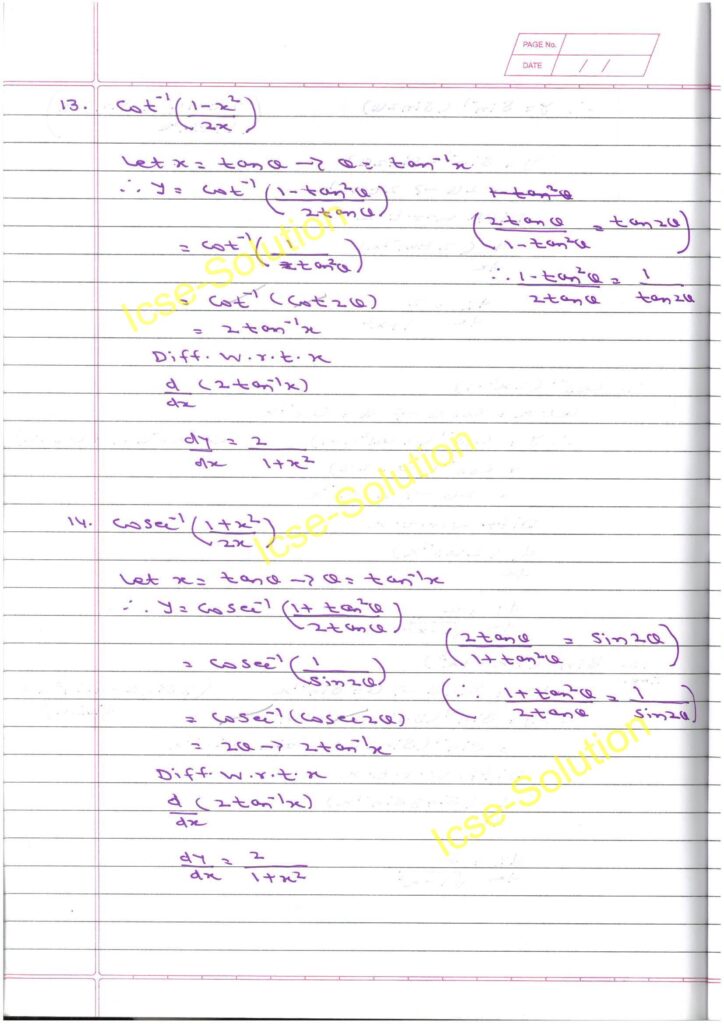 PAGE No.
DATE / /
13. Cot⁻¹ (1-x²/2x)
Let x = tanθ → θ = tan⁻¹x
∴ y = cot⁻¹ (1-tan²θ/2tanθ) 1-tan²θ
(2tanθ/1-tan²θ = tan2θ)
= cot⁻¹ (1/tan2θ)
∴ 1-tan²θ/2tanθ = 1/tan2θ
= cot⁻¹ (cot2θ)
= 2tan⁻¹x
Diff. w.r.t. x
d/dx (2tan⁻¹x)
dy/dx = 2/1+x²
14. Cosec⁻¹ (1+x²/2x)
Let x = tanθ → θ = tan⁻¹x
∴ y = cosec⁻¹ (1+tan²θ/2tanθ)
(2tanθ/1+tan²θ = sin2θ)
= cosec⁻¹ (1/sin2θ)
(∴ 1+tan²θ/2tanθ = 1/sin2θ)
= cosec⁻¹ (cosec2θ)
= 2θ → 2tan⁻¹x
Diff. w.r.t. x
d/dx (2tan⁻¹x)
dy/dx = 2/1+x²
Icse-Solution
Icse-Solution
Icse-Solution